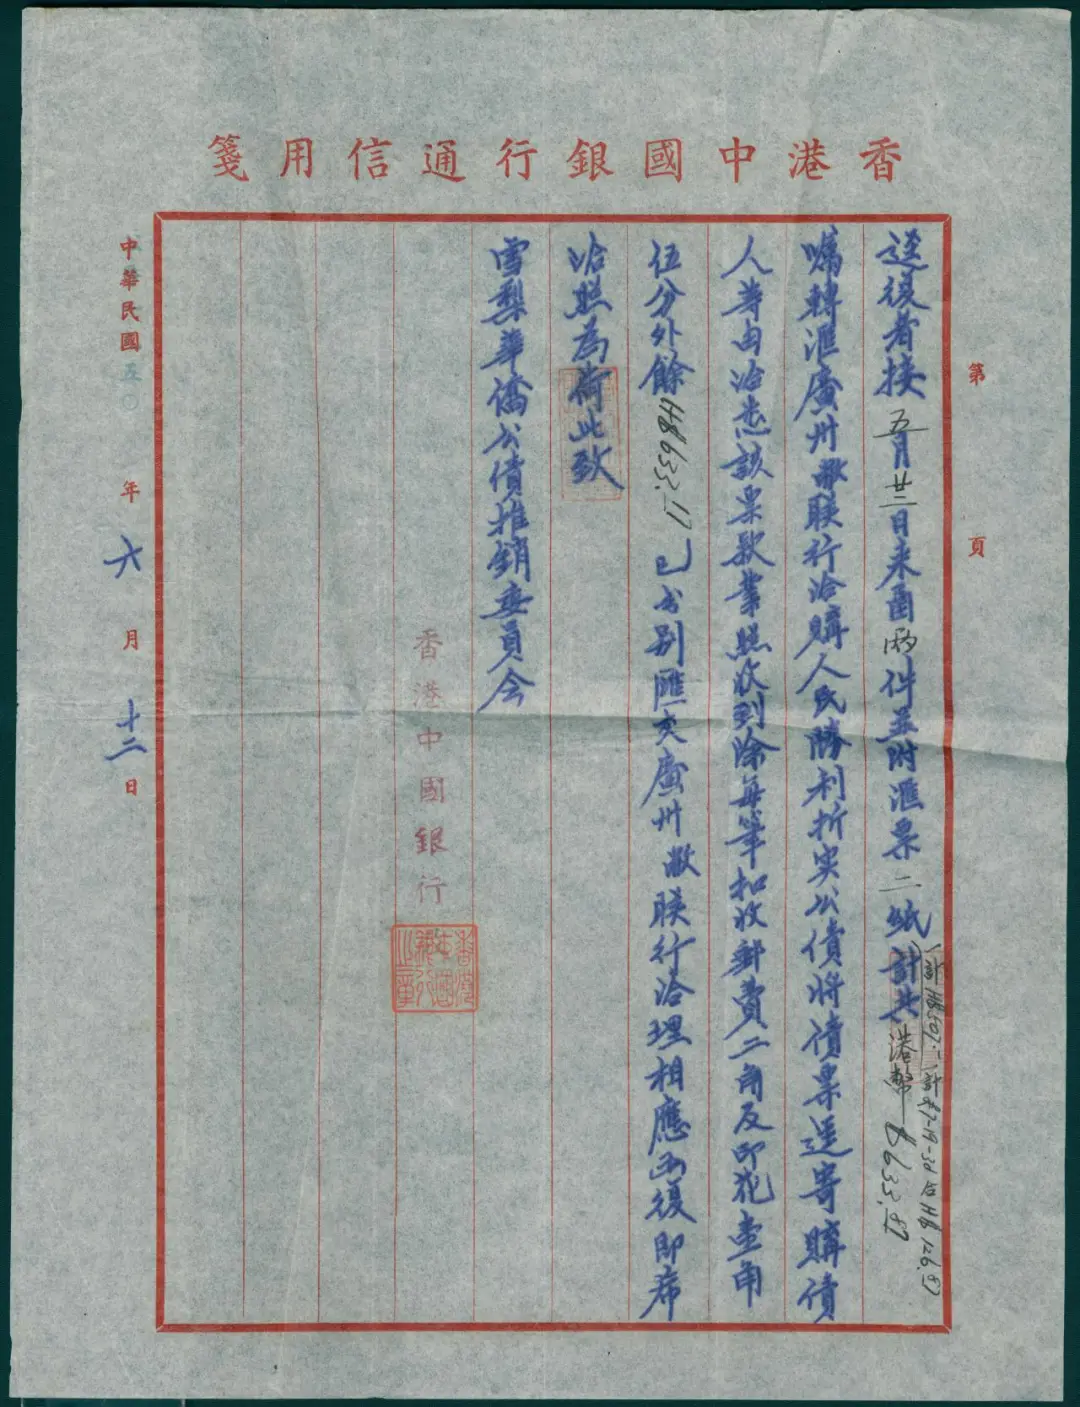 香港中國銀行通信用箋
第 頁
逕復者接五月廿二日來函兩件並附滙票二紙計共港幣$633.87
(一計HK$507.- 一計£7-19-3d合HK$126.87)
囑轉滙廣州敝聯行洽購人民勝利折实公債將債票逕寄購債
人等由洽悉該票款業照收到除每筆扣收郵費二角及印花壹角
伍分外餘HK$633.17已分别匯交廣州敝聯行洽理相應函復即希
洽照為荷此致
雪梨華僑公債推銷委員会
香港中國銀行
香港中國銀行之章
中華民國五〇年六月十二日